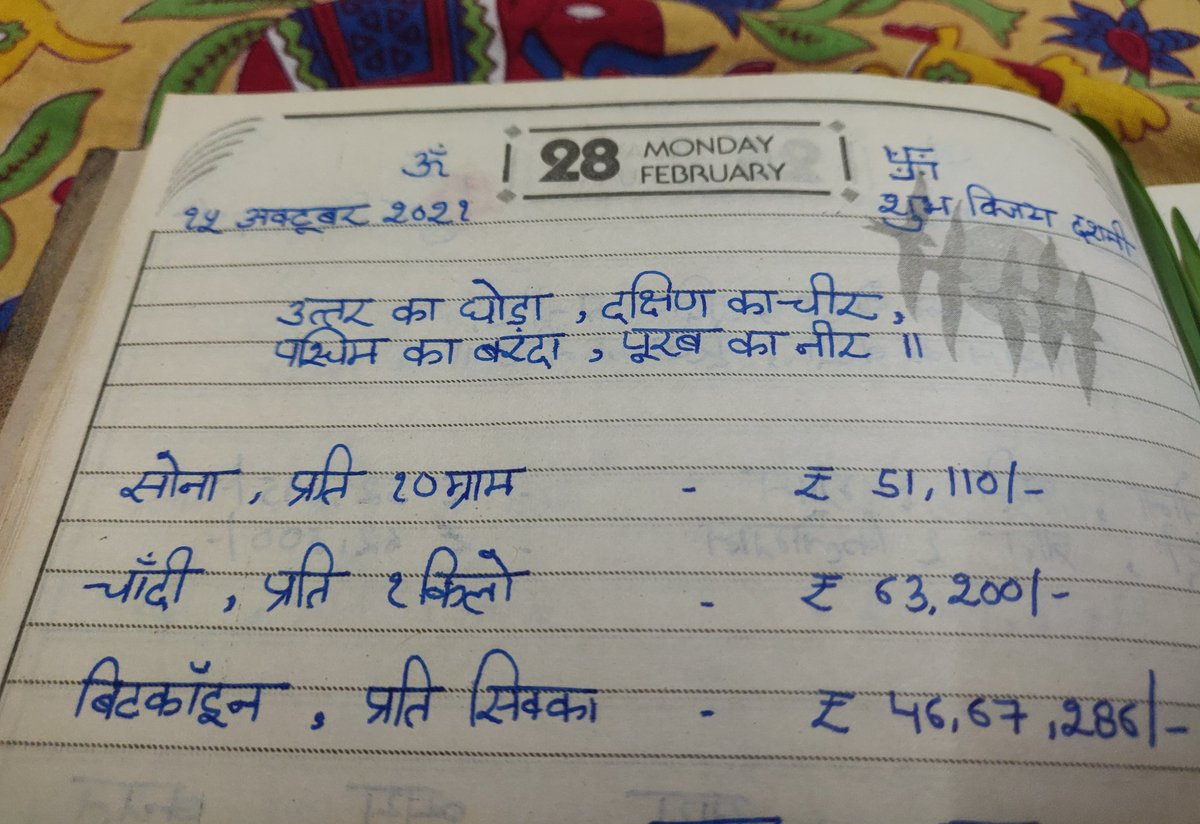 ॐ
28 MONDAY FEBRUARY
卐
१५ अक्टूबर २०२१
शुभ विजय दशमी
उत्तर का घोड़ा , दक्षिण का चीर ,
पश्चिम का बरंदा , पूरब का नीर ॥
सोना , प्रति १० ग्राम - ₹ 51,110/-
चाँदी , प्रति १ किलो - ₹ 63,200/-
बिटकॉइन , प्रति सिक्का - ₹ 46,67,286/-